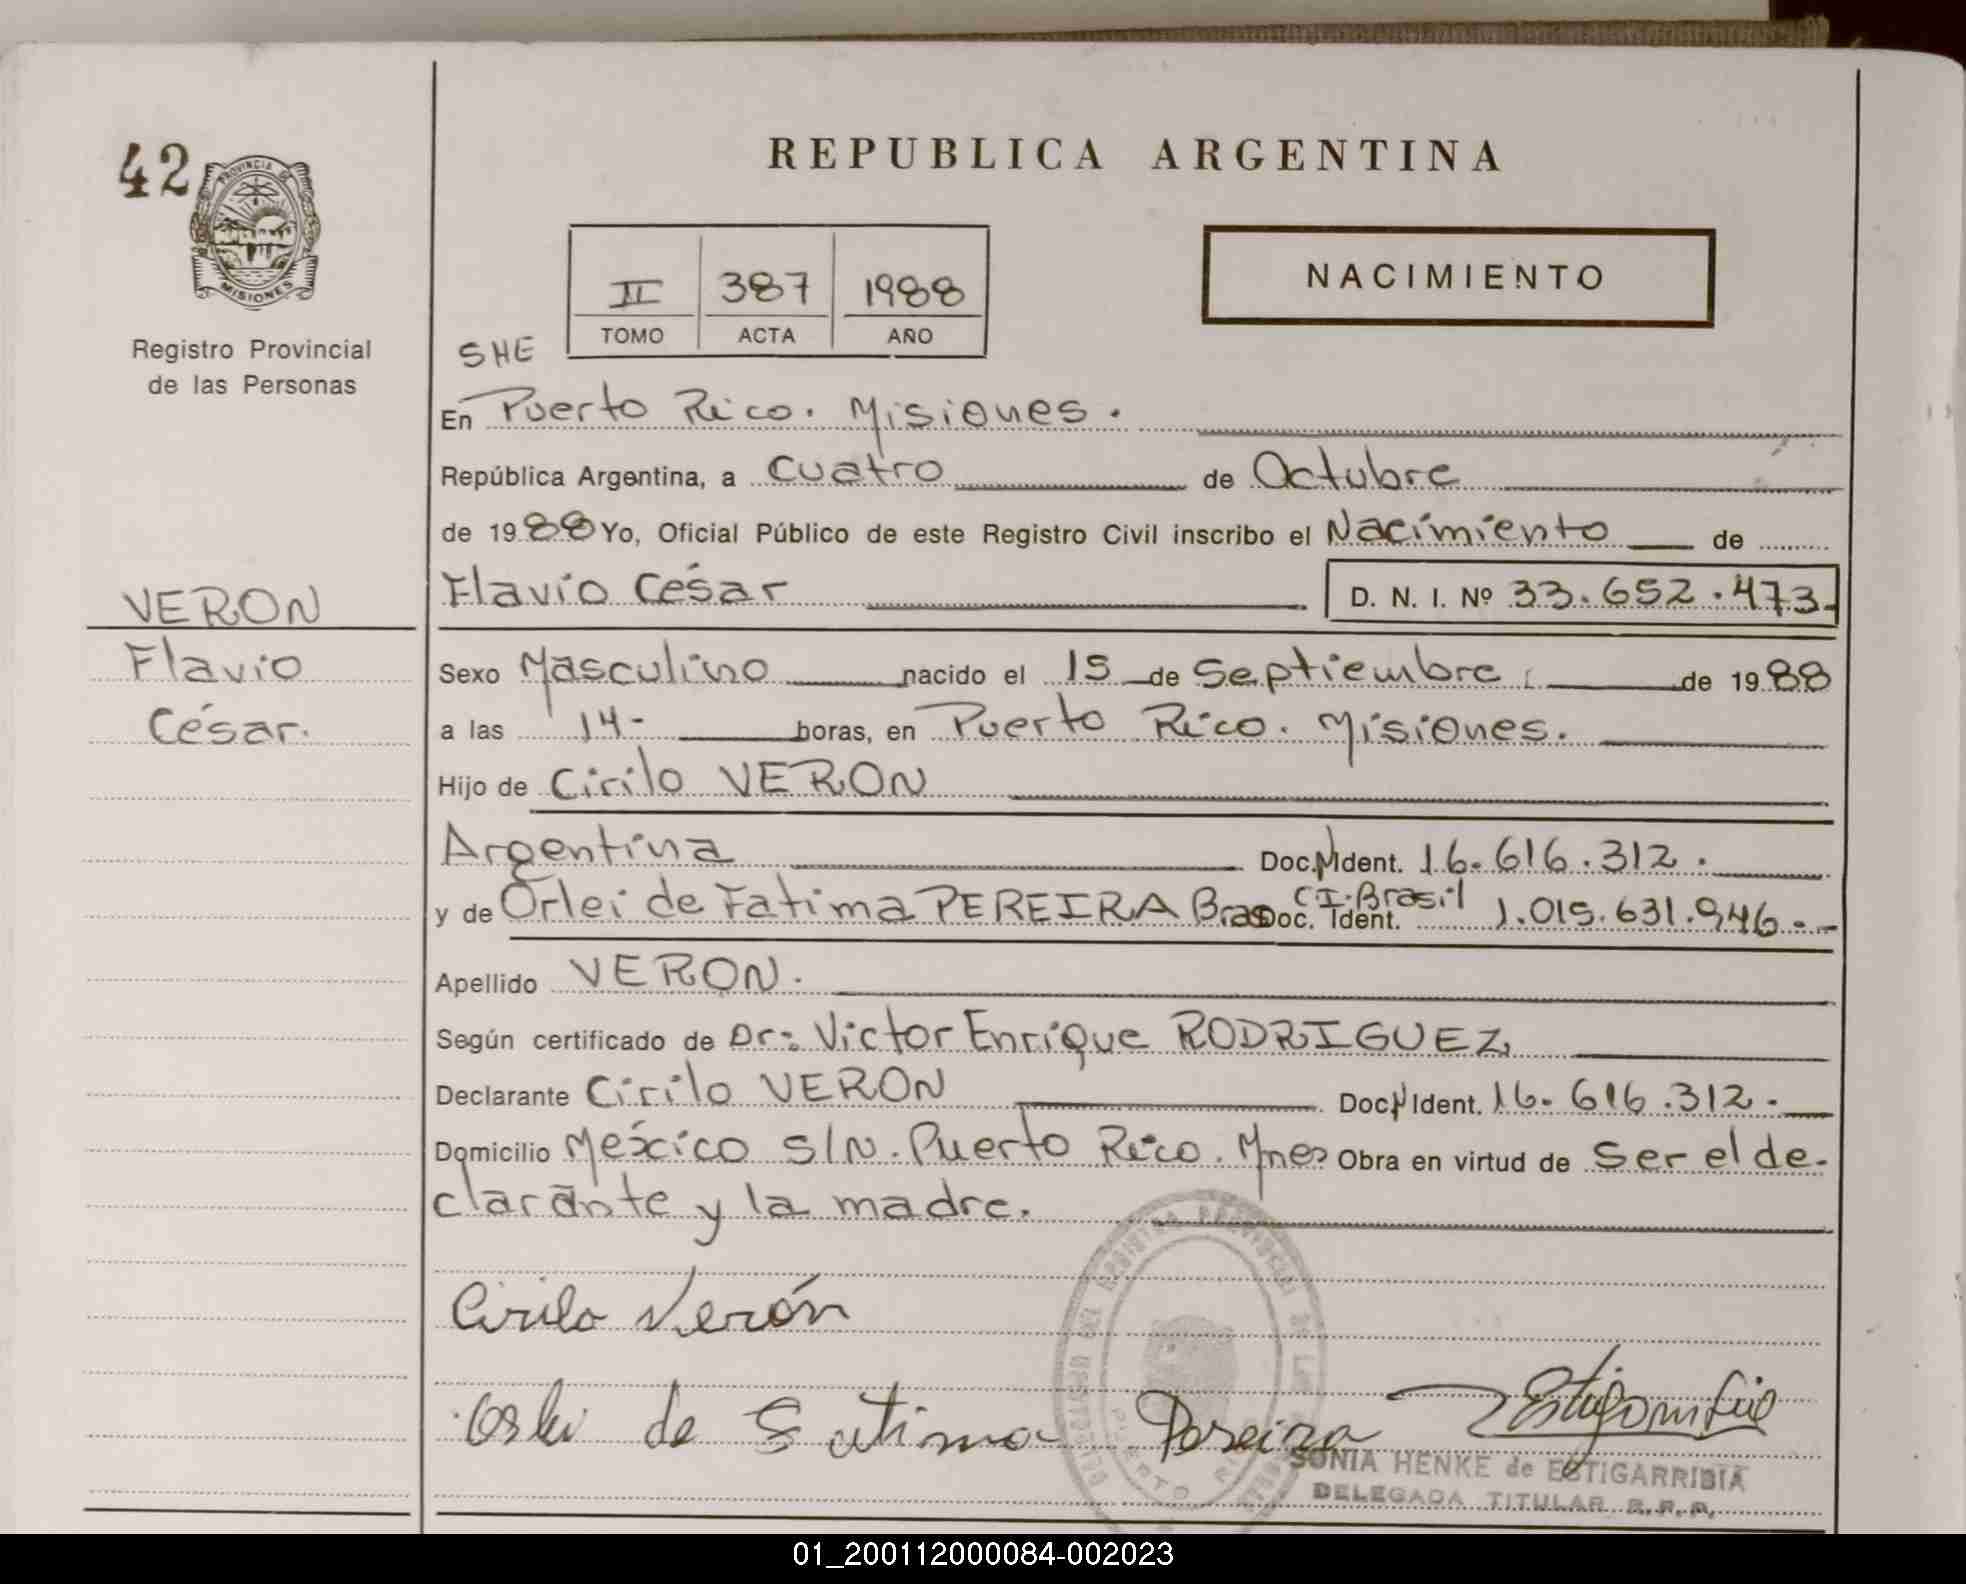 42
PROVINCIA DE
MISIONES
Registro Provincial
de las Personas
REPUBLICA ARGENTINA
NACIMIENTO
II 387 1988
TOMO ACTA AÑO
SHE
En Puerto Rico. Misiones.
República Argentina, a cuatro de Octubre
de 1988 Yo, Oficial Público de este Registro Civil inscribo el Nacimiento de
Flavio César D. N. I. Nº 33.652.473
VERON
Flavio
César.
Sexo Masculino nacido el 15 de Septiembre de 1988
a las 14- horas, en Puerto Rico. Misiones.
Hijo de Cirilo VERON
Argentina Doc.N Ident. 16.616.312.
y de Orlei de Fatima PEREIRA Bras Doc. Ident. C.I.Brasil 1.015.631.946.-
Apellido VERON.
Según certificado de Dr: Victor Enrique RODRIGUEZ
Declarante Cirilo VERON Doc.N Ident. 16.616.312.
Domicilio México S/N. Puerto Rico. Mnes Obra en virtud de ser el de-
clarante y la madre.
Cirilo Verón
Orlei de Fatima Pereira
SONIA HENKE de ESTIGARRIBIA
DELEGADA TITULAR R.P.P.
01_200112000084-002023